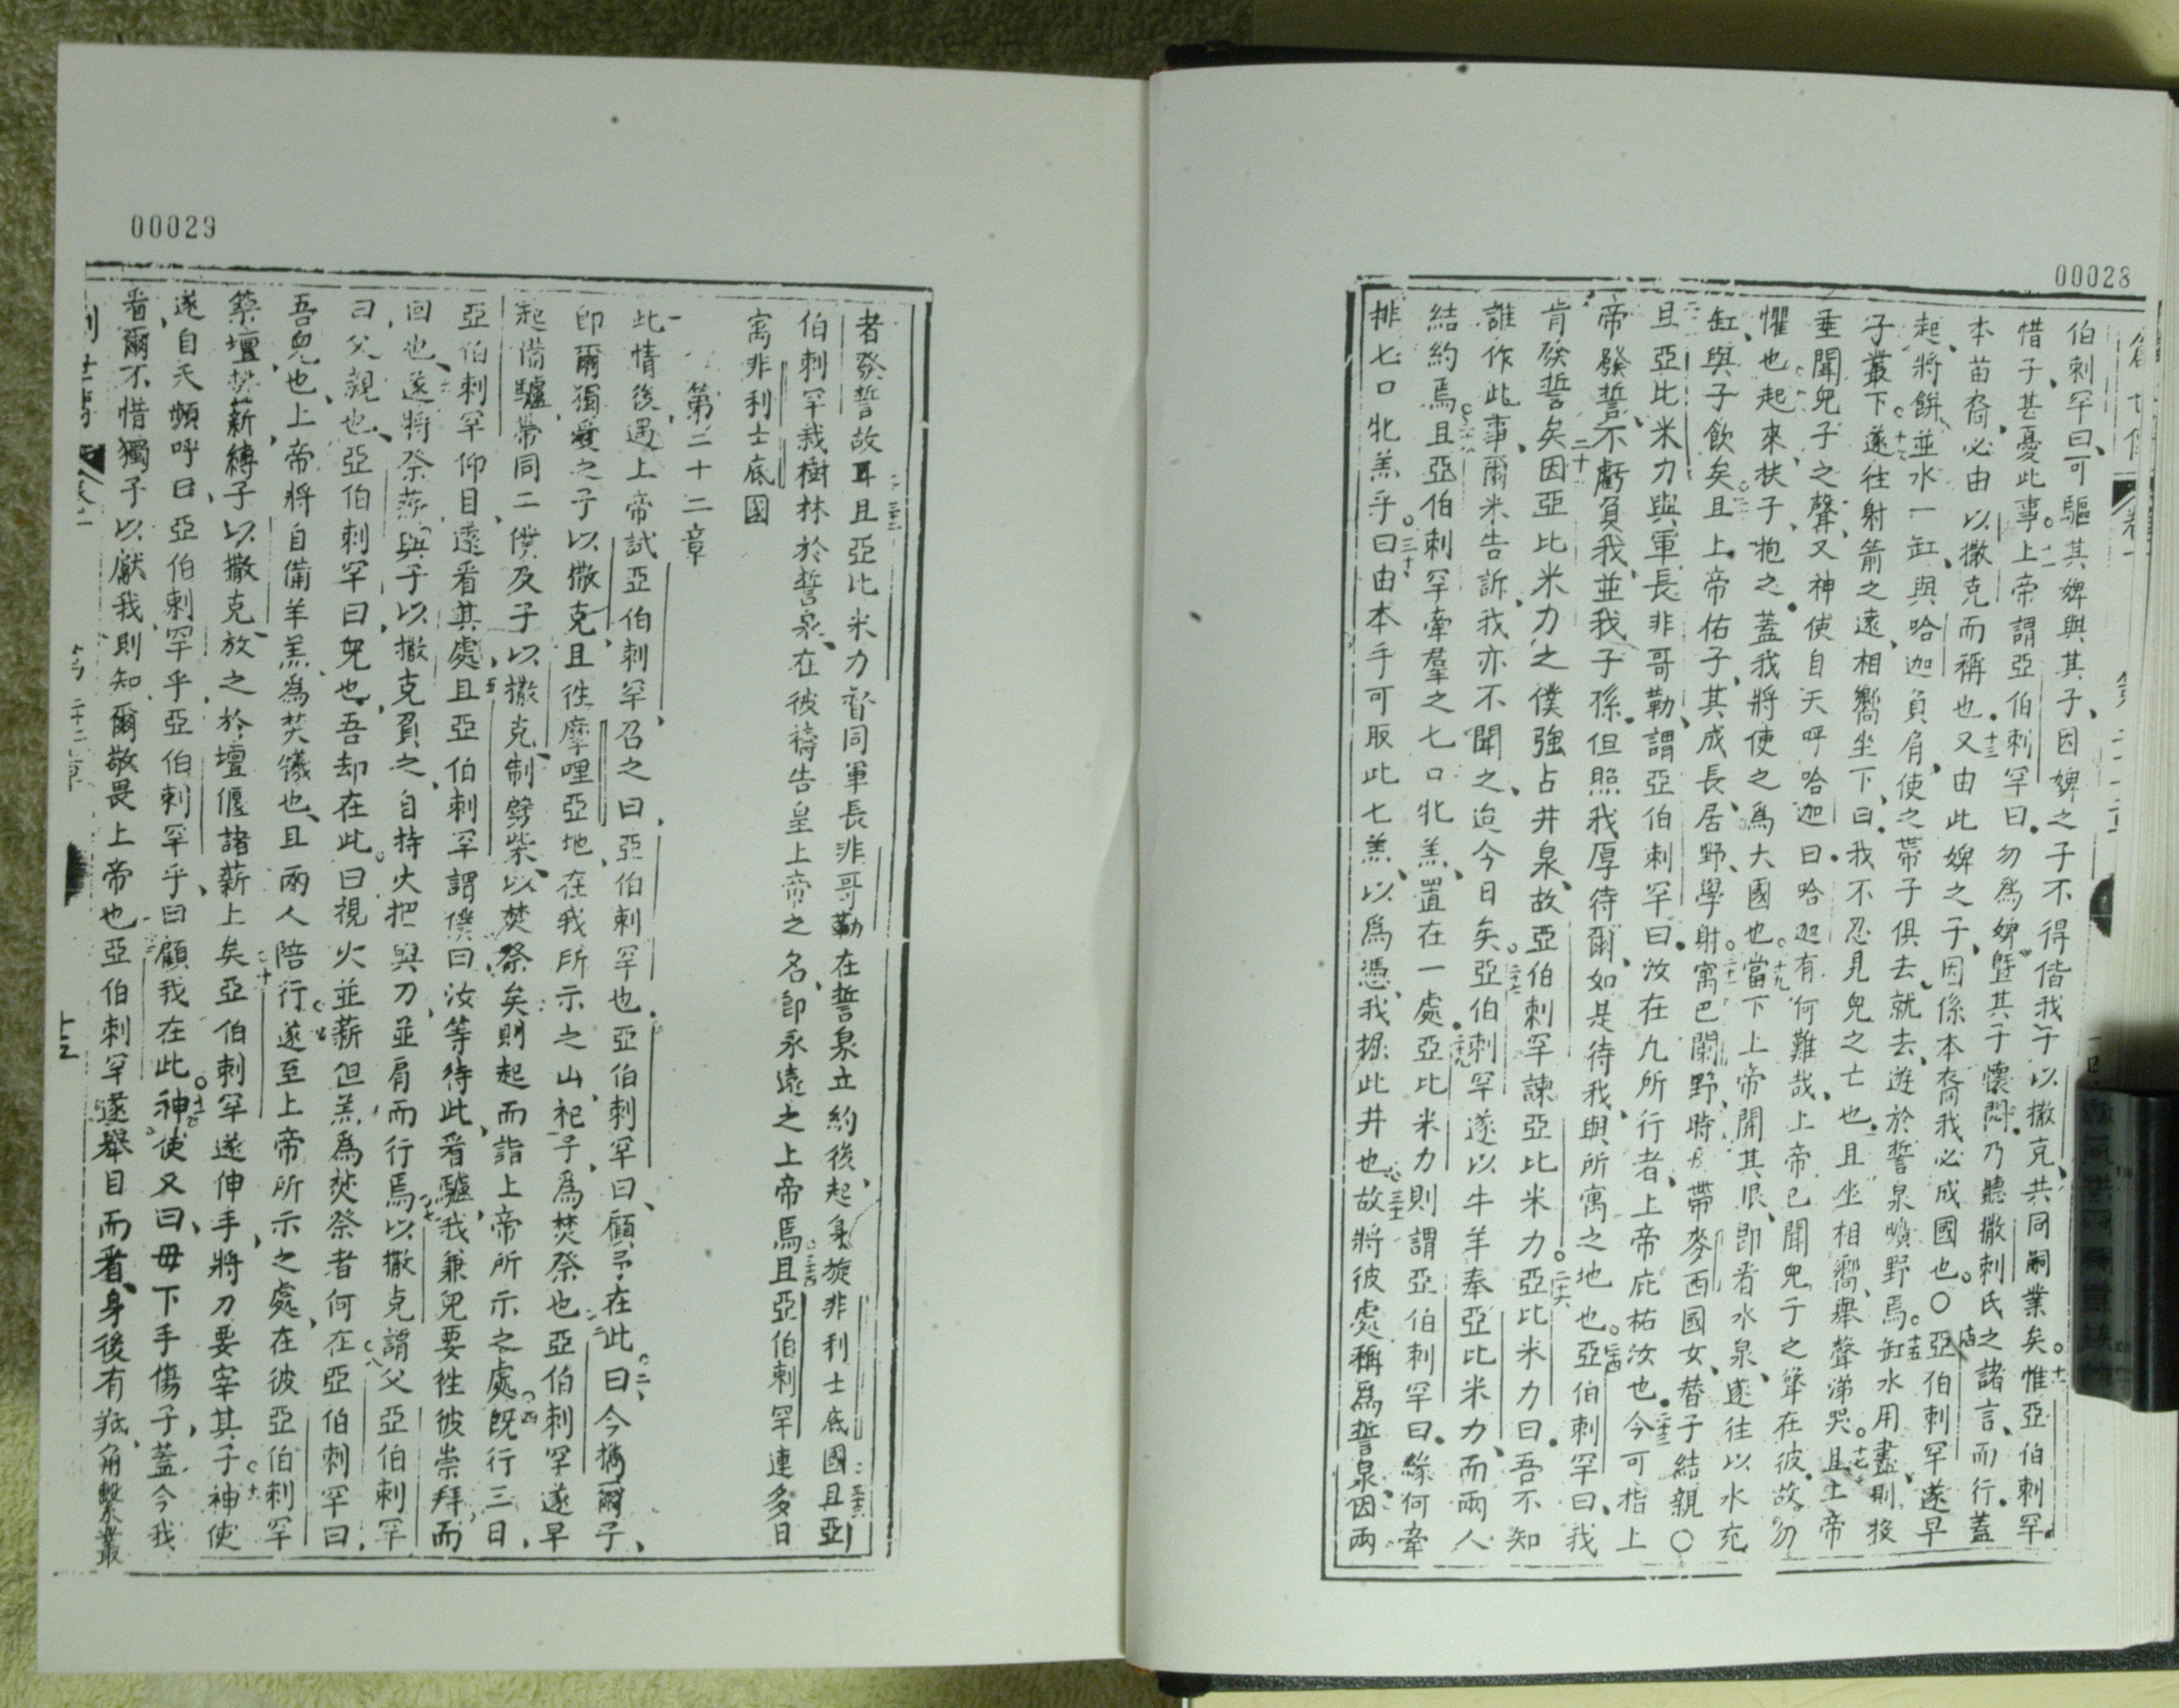 00028
伯剌罕曰、可驅其婢與其子、因婢之子不得偕我子以撒克、共同嗣業矣。十一惟亞伯剌罕
惜子、甚憂此事。十二上帝謂亞伯剌罕曰、勿爲婢曁其子懷悶、乃聽撒剌氏之諸言而行、蓋
本苗裔必由以撒克而稱也。十三又由此婢之子、因係本裔、我必成國也。○亞伯剌罕遂早
起、將餅並水一缸、與哈迦負肩、使之帶子俱去、就去遊於誓泉曠野焉。十五缸水用盡、則投
子叢下。十六遂往射箭之遠、相嚮坐下、曰、我不忍見兒之亡也、且坐相嚮、舉聲涕哭。十七且上帝
垂聞兒子之聲、又神使自天呼哈迦曰、哈迦有何難哉、上帝已聞兒子之聲在彼、故勿
懼也。起來、扶子、抱之、蓋我將使之爲大國也。十九當下上帝開其眼、卽看水泉、遂往以水充
缸、與子飲矣。且上帝佑子、其成長、居野、學射。二十一寓巴蘭野、時母帶麥西國女、替子結親。○
且亞比米力與軍長非哥勒、謂亞伯剌罕曰、汝在凢所行者、上帝庇祐汝也。二十三今可指上
帝發誓、不虧負我、並我子孫、但照我厚待爾、如是待我、與所寓之地也。二十四亞伯剌罕曰、我
肯發誓矣。因亞比米力之僕強占井泉、故亞伯剌罕諫亞比米力。二十六亞比米力曰、吾不知
誰作此事、爾未告訴、我亦不聞之、迨今日矣。二十七亞伯剌罕遂以牛羊奉亞比米力、而兩人
結約焉。且亞伯剌罕牽羣之七口牝羔、置在一處。二十九亞比米力則謂亞伯剌罕曰、緣何牽
排七口牝羔乎。三十曰、由本手可取此七羔、以爲憑、我掘此井也。三十一故將彼處稱爲誓泉、因兩
00029
者發誓故耳。且亞比米力督同軍長非哥勒、在誓泉立約後、起身旋非利士底國。三十三且亞
伯剌罕栽樹林於誓泉、在彼禱告皇上帝之名、卽永遠之上帝焉。三十四且亞伯剌罕連多日
寓非利士底國
第二十二章
一此情後、遇上帝試亞伯剌罕、召之曰、亞伯剌罕也。亞伯剌罕曰、顧予在此。二曰、今攜爾子、
卽爾獨愛之子以撒克、且徃摩哩亞地、在我所示之山、祀子爲焚祭也。三亞伯剌罕遂早
起、備驢、帶同二僕及子以撒克、制劈柴以焚祭矣、則起而詣上帝所示之處。四旣行三日、
亞伯剌罕仰目、遠看其處。五且亞伯剌罕謂僕曰、汝等待此、看驢、我兼兒要徃彼崇拜而
回也。六遂將祭薪與子以撒克負之、自持火把與刀、並肩而行焉。七以撒克謂父亞伯剌罕
曰、父親也。亞伯剌罕曰、兒也、吾却在此。曰、視火並薪、但羔爲焚祭者何在。八亞伯剌罕曰、
吾兒也、上帝將自備羊羔、爲焚犧也。且兩人陪行。九遂至上帝所示之處、在彼亞伯剌罕
築壇、排薪、縛子以撒克、放之於壇偃諸薪上矣。十亞伯剌罕遂伸手將刀要宰其子。十一神使
遂自天頫呼曰、亞伯剌罕乎、亞伯剌罕乎。曰、顧我在此。十二神使又曰、毋下手傷子、蓋今我
看爾不惜獨子以獻我、則知爾敬畏上帝也。亞伯剌罕遂舉目而看、身後有羝、角繫叢